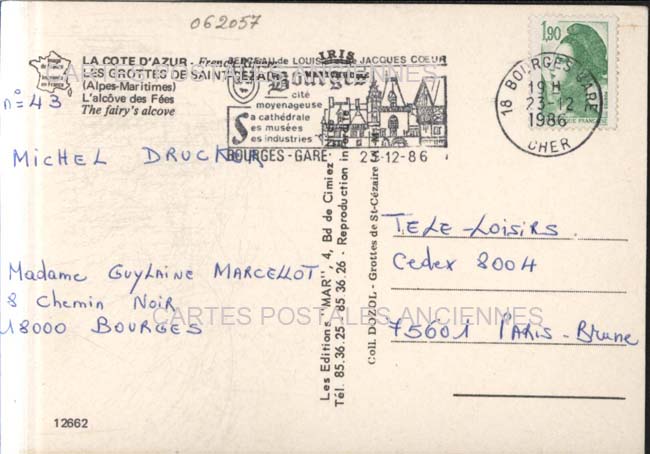 062057
LA COTE D'AZUR - French
LES GROTTES DE SAINT-CÉZAIRE
(Alpes-Maritimes)
L'alcôve des Fées
The fairy's alcove
n° 43
MICHEL DRUCKER
Madame GUYLAINE MARCELLOT
8 Chemin Noir
18000 BOURGES
12662
IRIS
BERCEAU de LOUIS JACQUES COEUR
Bourges
cité
moyenageuse
Sa cathédrale
Ses musées
Ses industries
BOURGES-GARE 23-12-86
Les Editions "MAR", 4, Bd de Cimiez
Tél. 85.36.25 - 85.36.26 - Reproduction
Coll. DOZOL - Grottes de St-Cézaire
1,90
18 BOURGES GARE
19 H
23-12
1986
CHER
TELE-LOISIRS
Cedex 8004
75601 PARIS-Brune
CARTES POSTALES ANCIENNES
CARTES POSTALES ANCIENNES